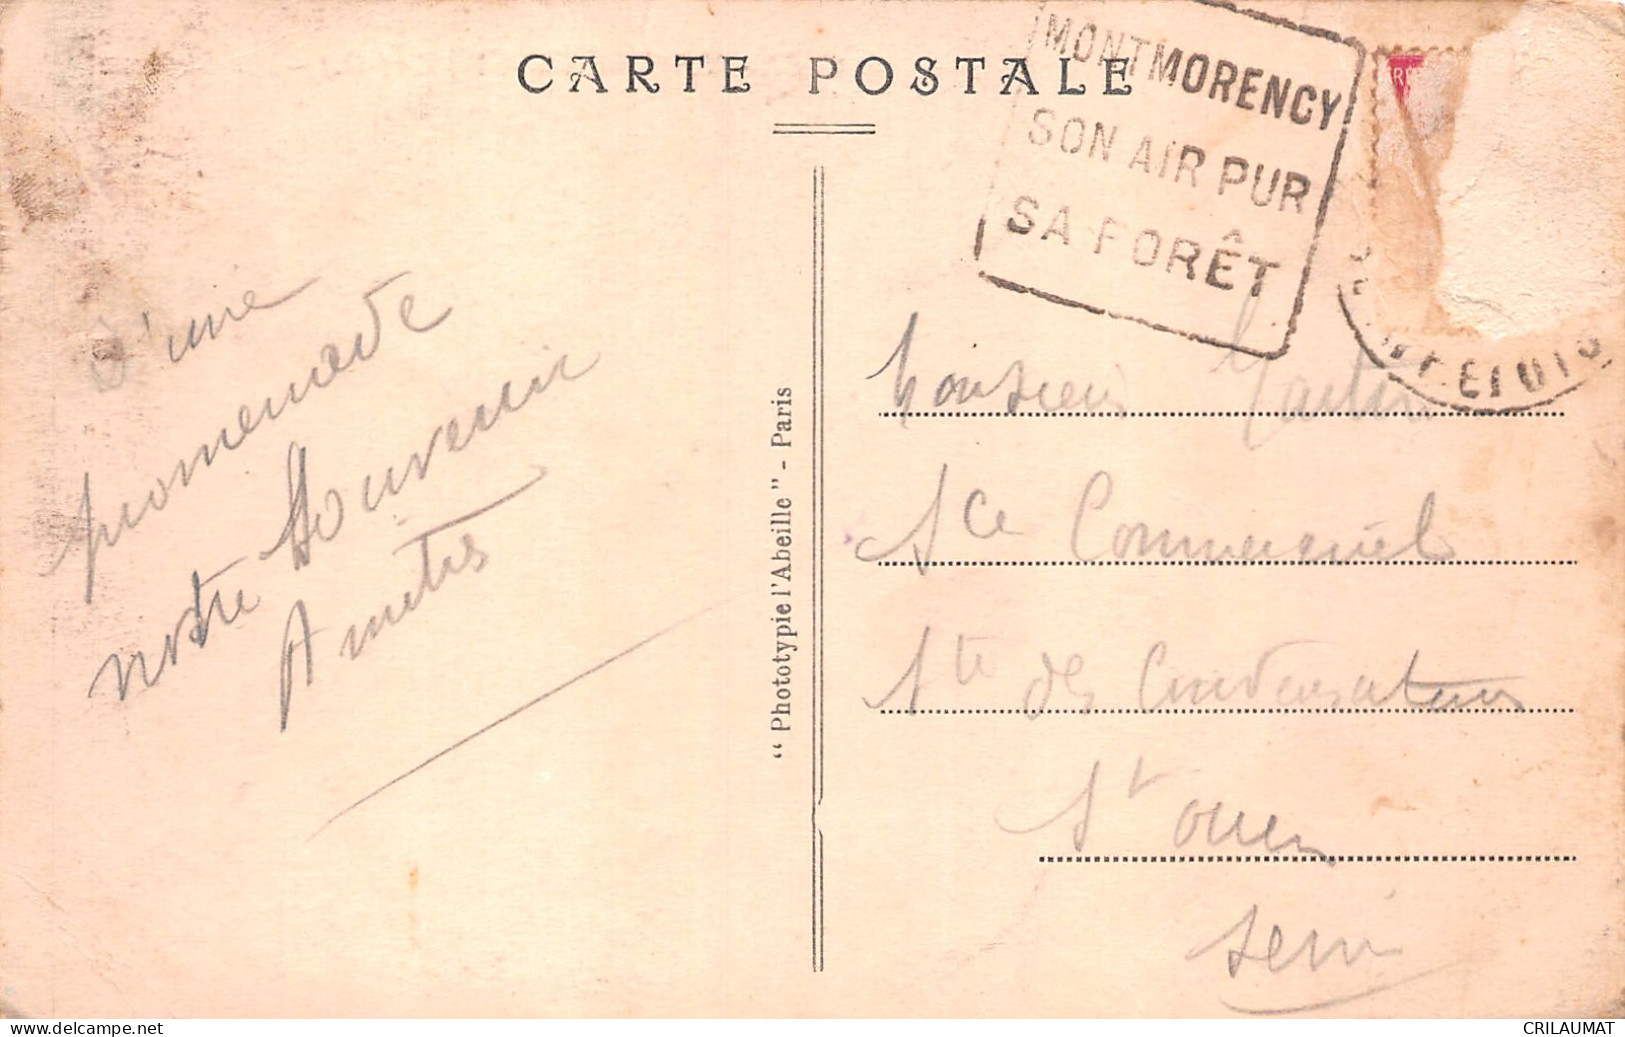 CARTE POSTALE
MONTMORENCY
SON AIR PUR
SA FORÊT
D'une
promenade
notre Souvenir
“ Photographie l'Abeille ” - Paris
Monsieur
Sce Commercial
Sté des Condensateurs
St Ouen
Seine
www.delcampe.net
CRILAUMAT